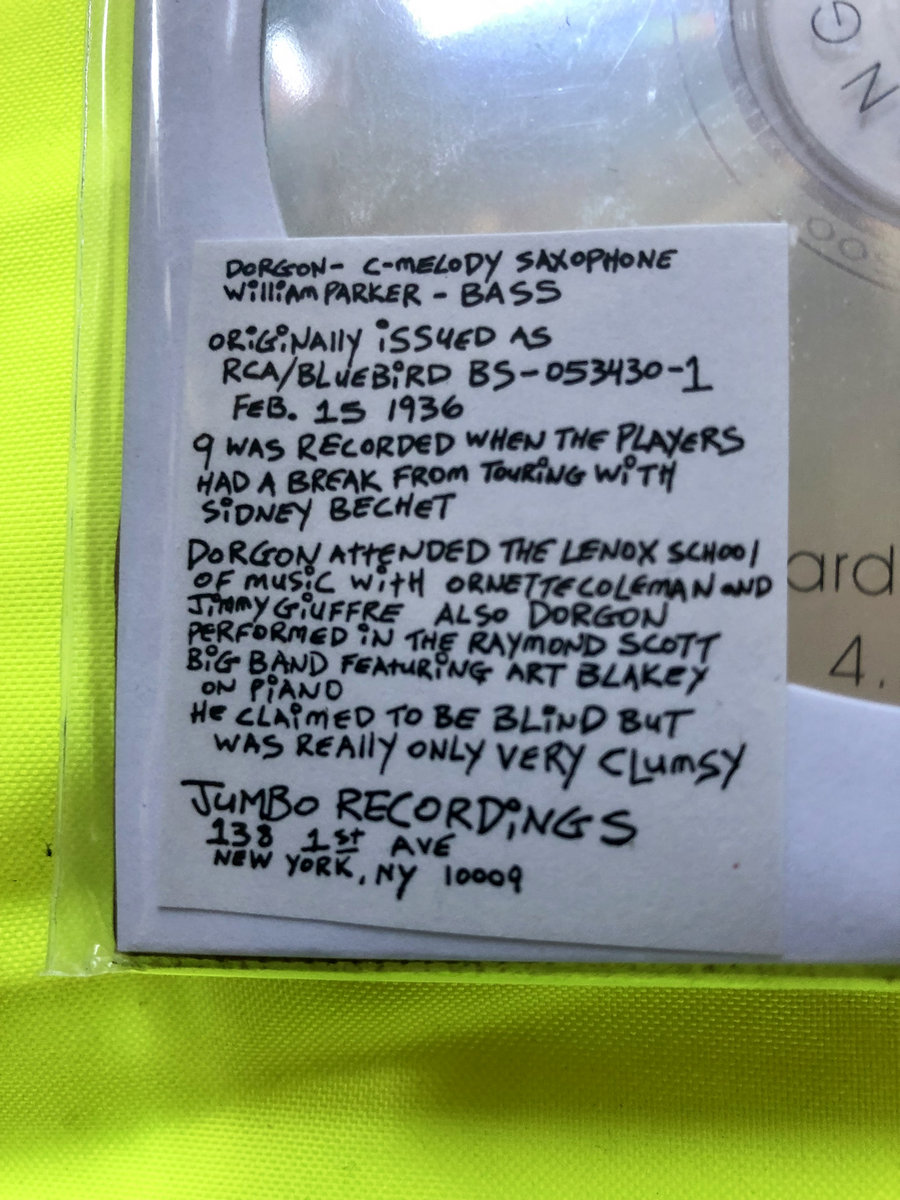 GN
DORGON- C-MELODY SAXOPHONE
WilliAM PARKER - BASS
ORiGiNAlly iSSUED AS
RCA/BLUEBiRD BS-053430-1
FEB. 15 1936
9 WAS RECORDED WHEN THE PLAYERS
HAD A BREAK FROM TOURiNG WiTH
SiDNEY BECHET
DORGON AttENDED THE LENOX SCHOOl
OF MUSiC WiTH ORNETTE COLEMAN AND
JiMMY GiUFFRE ALSO DORGON
PERFORMED iN THE RAYMOND SCOTT
BiG BAND FEATURiNG ART BLAKEY
ON PiANO
He CLAiMED TO BE BLiND BUT
WAS REAlly ONLY VERY CLUMSY
JUMBO RECORDiNGS
138 1st AVE
NEW YORK, NY 10009
ard
4.